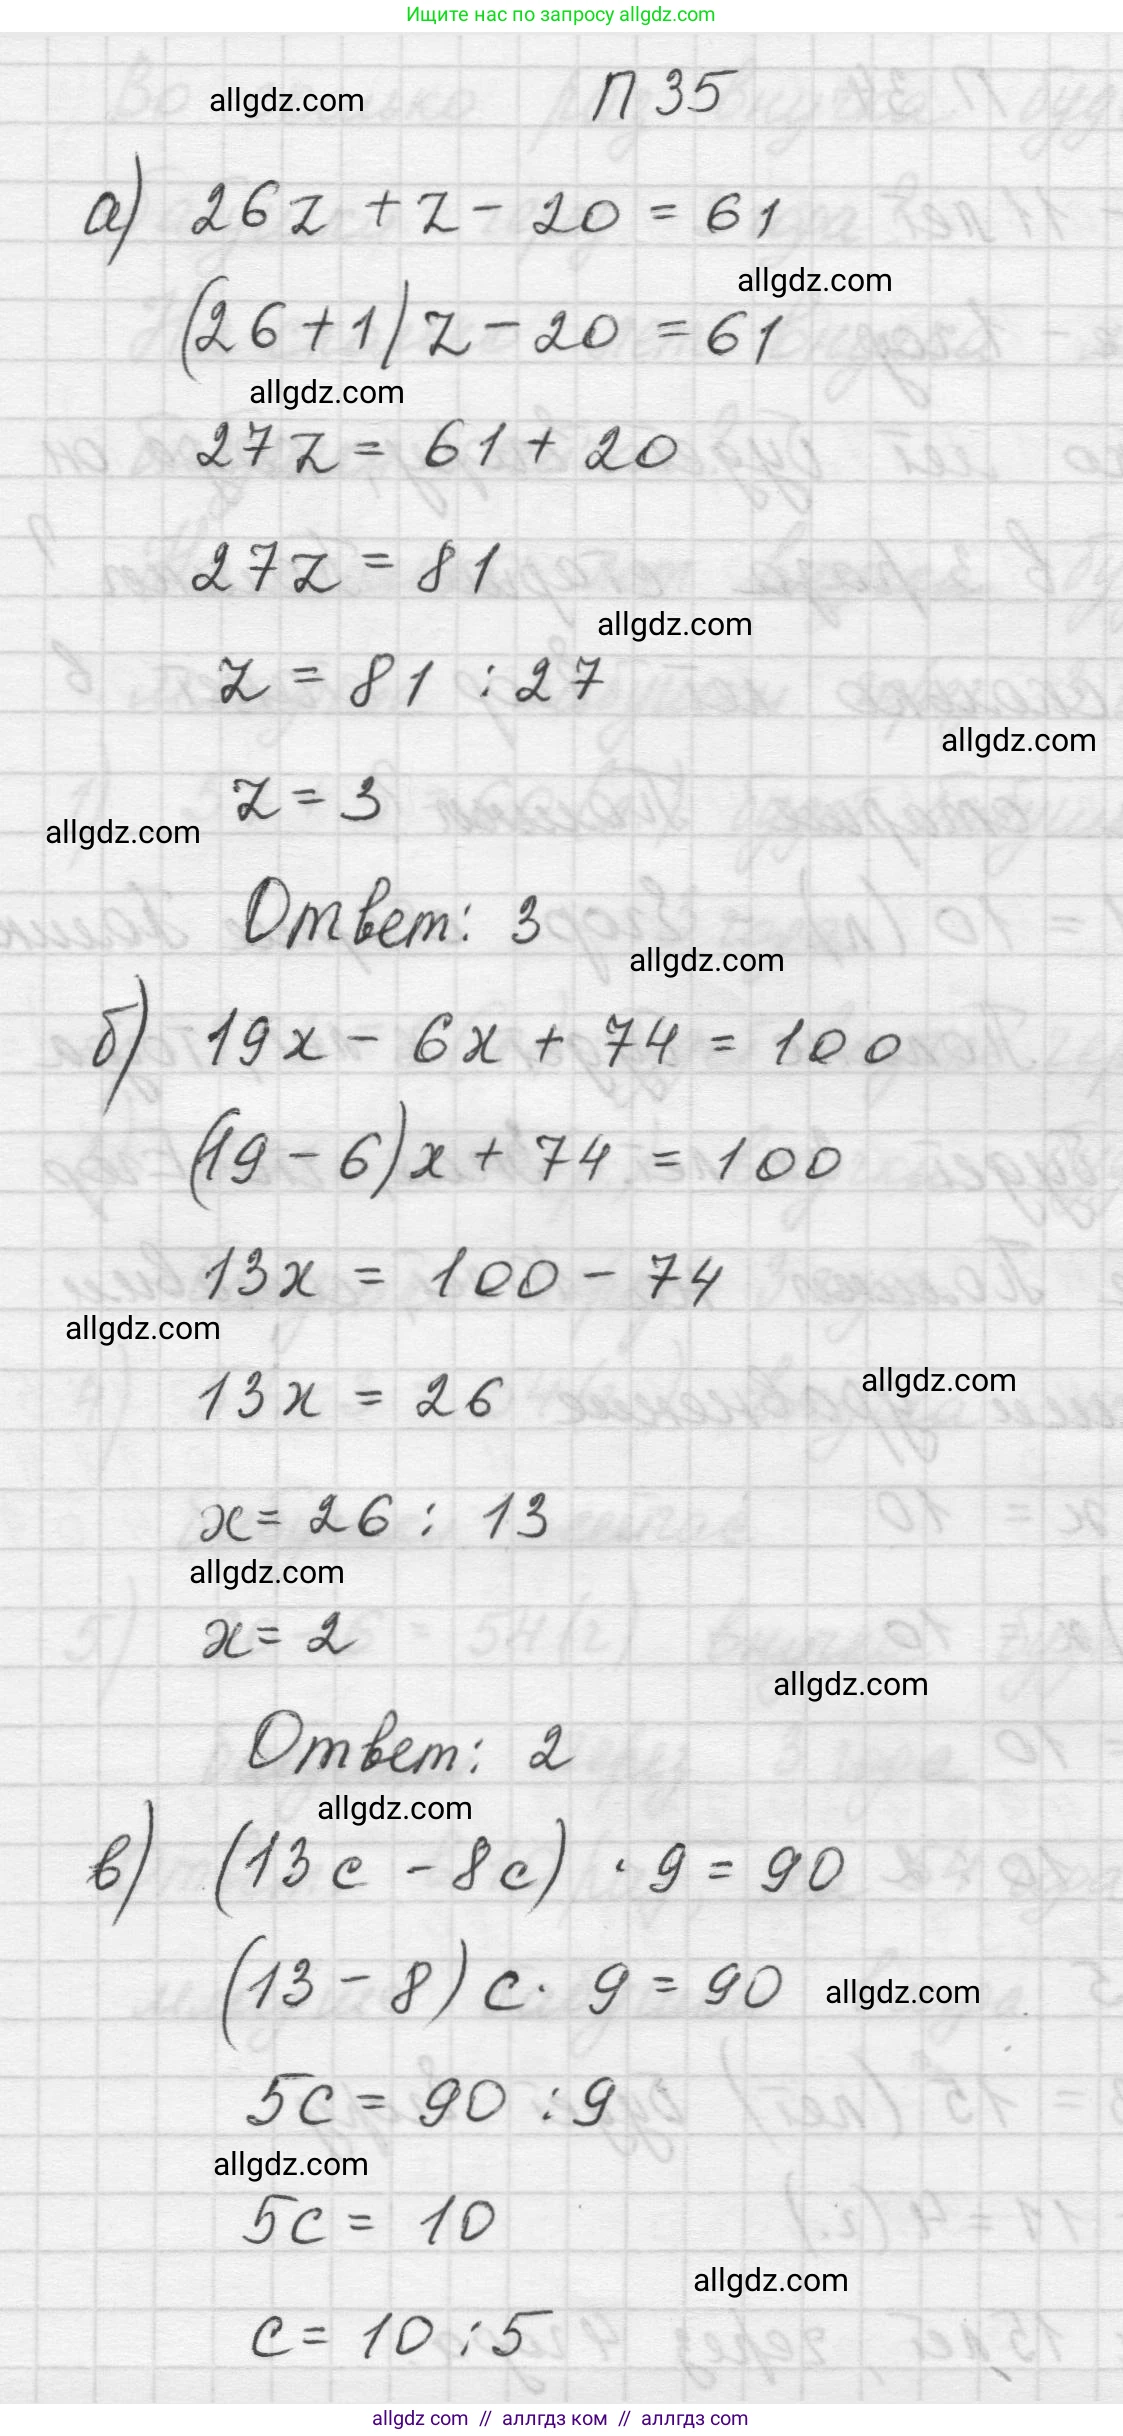 Ищите нас по запросу allgdz.com
allgdz.com
П 35
а) 26z + z - 20 = 61
allgdz.com
(26 + 1) z - 20 = 61
allgdz.com
27z = 61 + 20
27z = 81
allgdz.com
z = 81 : 27
allgdz.com
z = 3
allgdz.com
Ответ: 3
allgdz.com
б) 19x - 6x + 74 = 100
(19 - 6) x + 74 = 100
13x = 100 - 74
allgdz.com
13x = 26
allgdz.com
x = 26 : 13
allgdz.com
x = 2
allgdz.com
Ответ: 2
allgdz.com
в) (13c - 8c) · 9 = 90
(13 - 8) c · 9 = 90
allgdz.com
5c = 90 : 9
allgdz.com
5c = 10
allgdz.com
c = 10 : 5
allgdz.com // аллгдз ком // аллгдз com